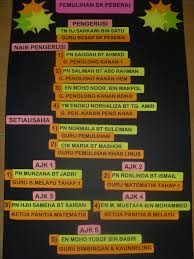 PEMULIHAN SK PEBERAI
PENGERUSI
TN HJ SARKAWI BIN SATU
GURU BESAR SK PEBERAI
NAIB PENGERUSI
1) PN SAODAH BT AHMAD
G. PENOLONG KANAN 1
2) PN SALIMAH BT ABD RAHMAN
G. PENOLONG KANAN HEM
3) EN MOHD NOOR. BIN MAKPOL
G. PENOLONG KANAN KOKO
4) TM ENGKU NORHALIZA BT TG. AMRI
G. PENOLONG KANAN PEND KHAS
SETIAUSAHA
1) PN NORMALA BT SULEIMAN
GURU PEMULIHAN
2) CIK MARIA BT MASHOR
GURU PEMULIHAN KHAS LINUS
AJK 1
1) PN MURZANA BT JADRI
GURU B.MELAYU TAHAP 1
AJK 2
2) PN ROSLINDA BT ISMAIL
GURU MATEMATIK TAHAP 1
AJK 3
3) PN HJH SAMEHA BT SAIRAN
KETUA PANITIA MATEMATIK
AJK 4
4) EN M. MUSTAFFA BIN MOHAMMED
KETUA PANITIA B.MELAYU
AJK 5
5) EN MOHD YUSOF BIN BASIR
GURU BIMBINGAN & KAUNSELING